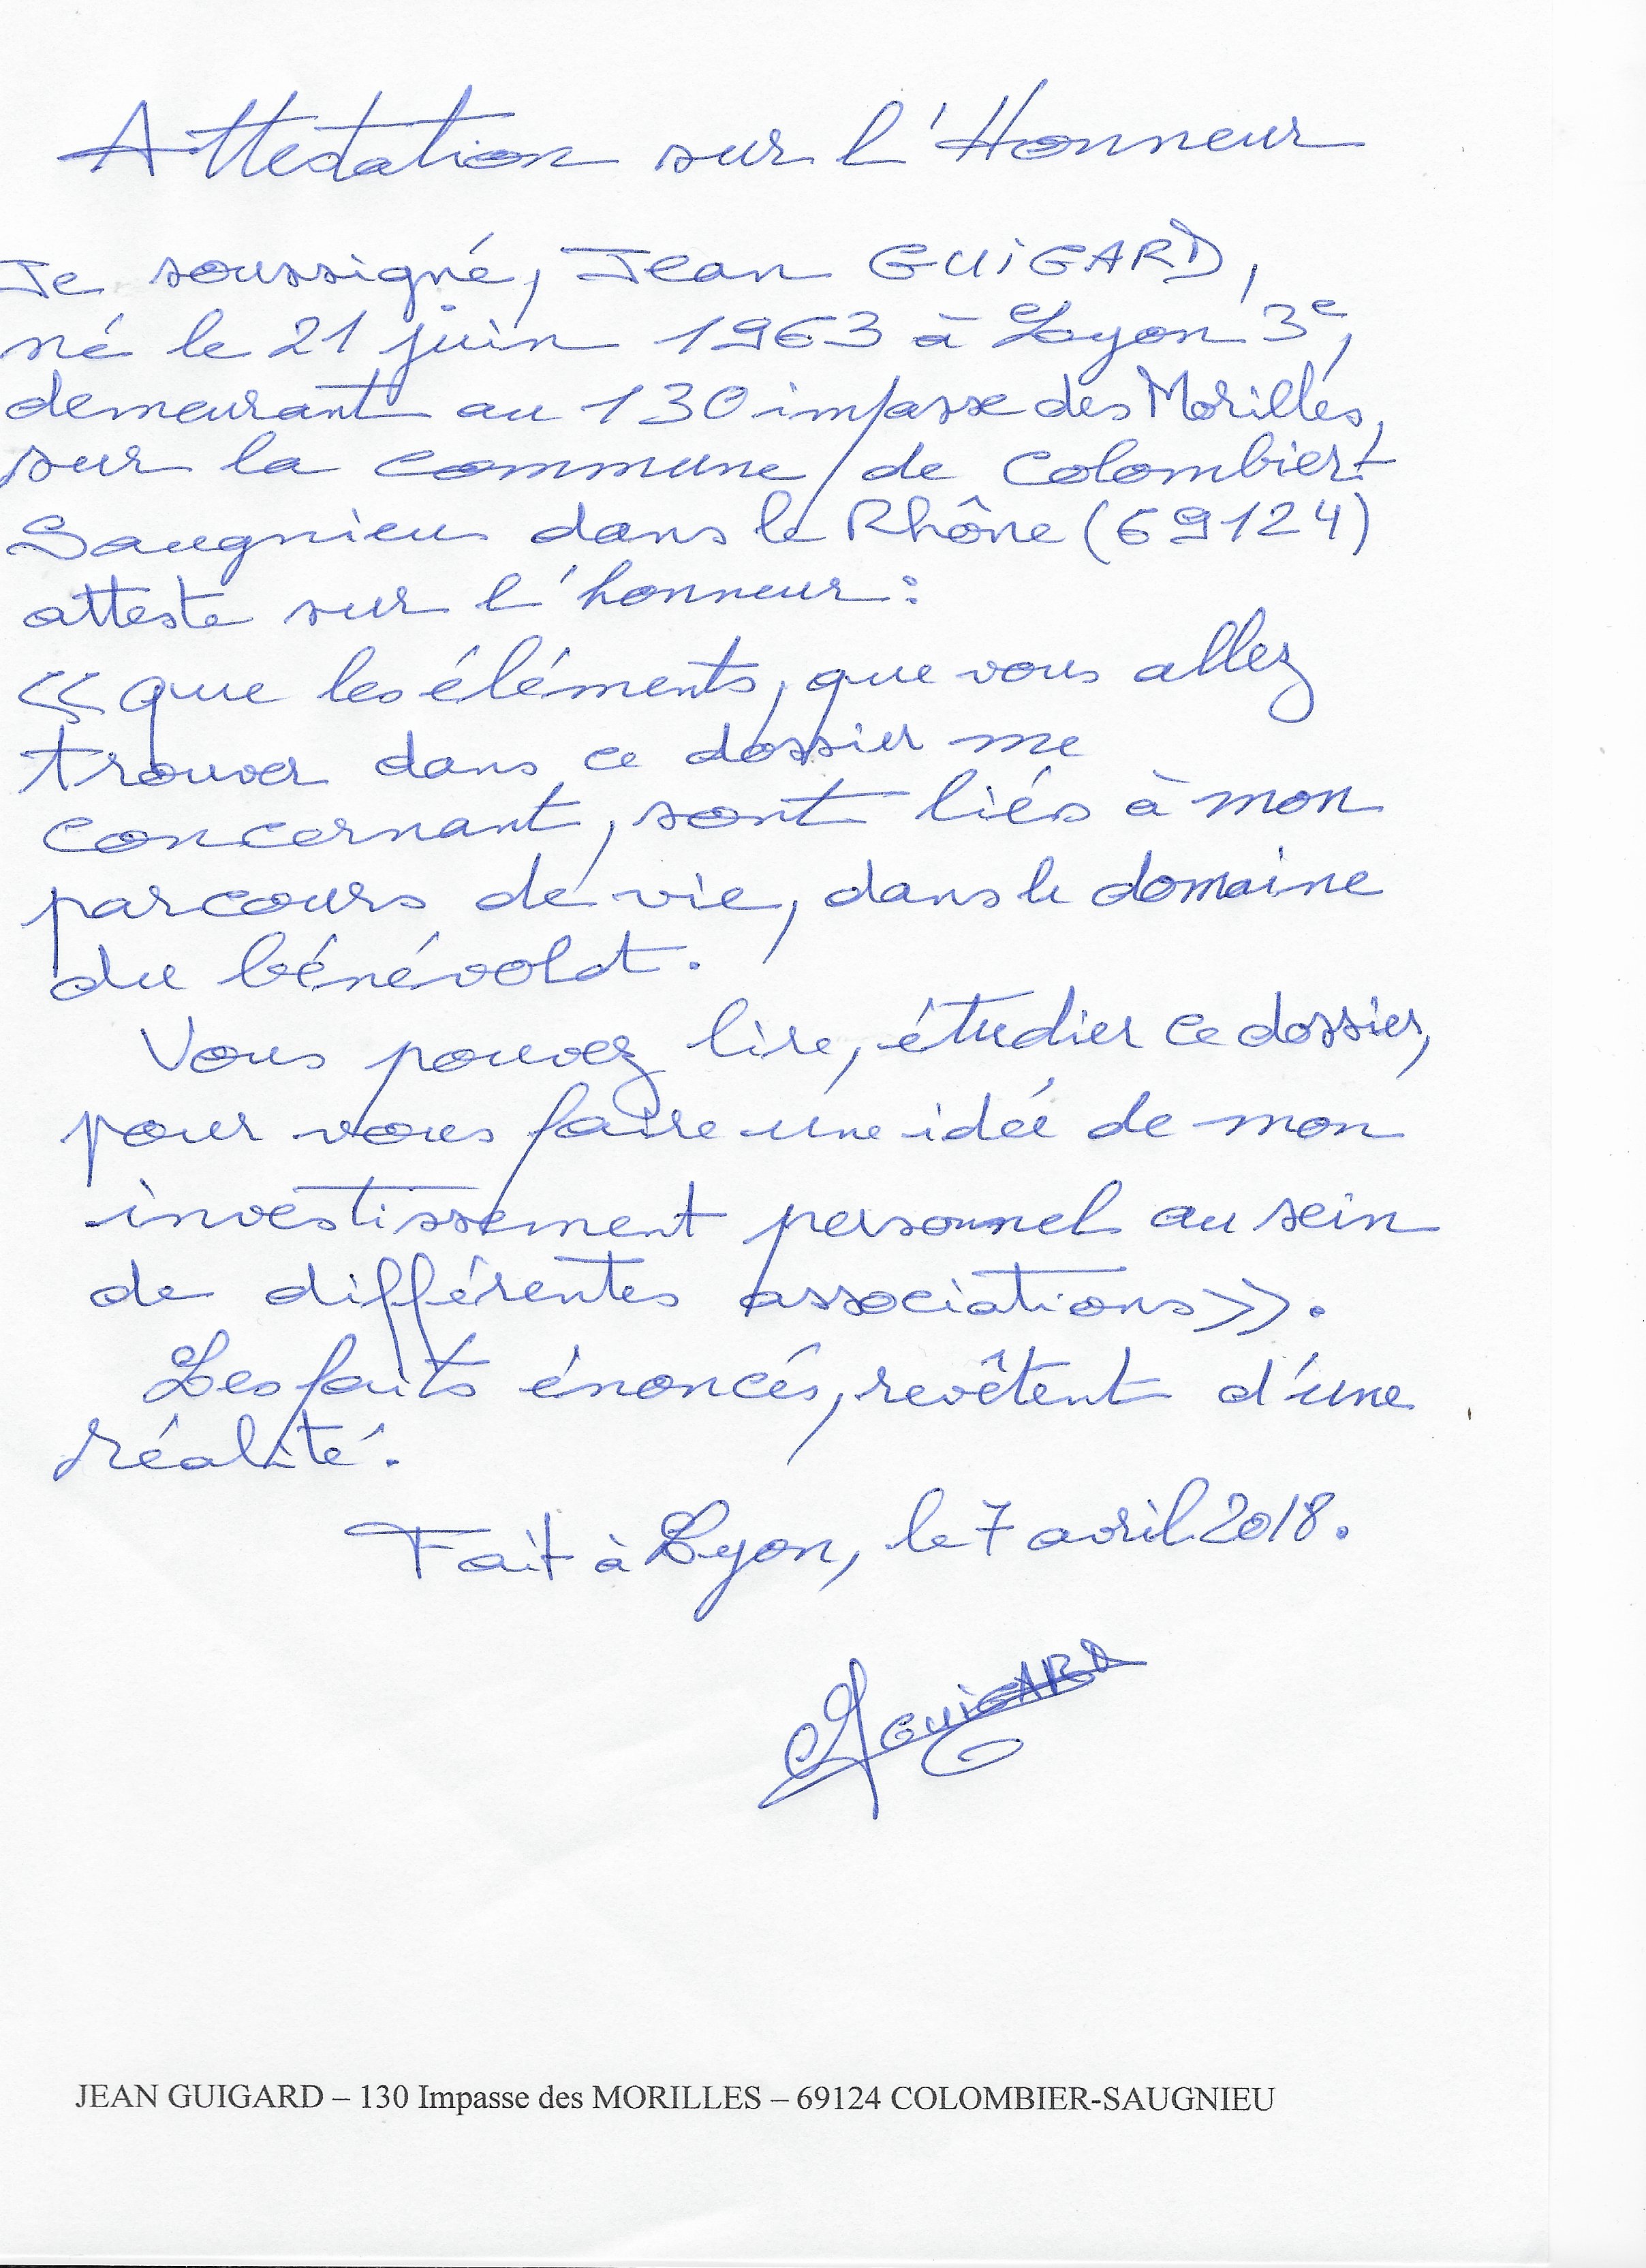 Attestation sur l'Honneur
Je soussigné, Jean GUIGARD,
né le 21 juin 1963 à Lyon 3e,
demeurant au 130 impasse des Morilles,
sur la commune de Colombier-
Saugnieu dans le Rhône (69124)
atteste sur l'honneur :
<< que les éléments, que vous allez
trouver dans ce dossier me
concernant, sont liés à mon
parcours de vie, dans le domaine
du bénévolat.
Vous pouvez lire, étudier ce dossier,
pour vous faire une idée de mon
investissement personnel au sein
de différentes associations >>.
Les faits énoncés, revêtent d'une
réalité.
Fait à Lyon, le 7 avril 2018.
GUIGARD
JEAN GUIGARD – 130 Impasse des MORILLES – 69124 COLOMBIER-SAUGNIEU